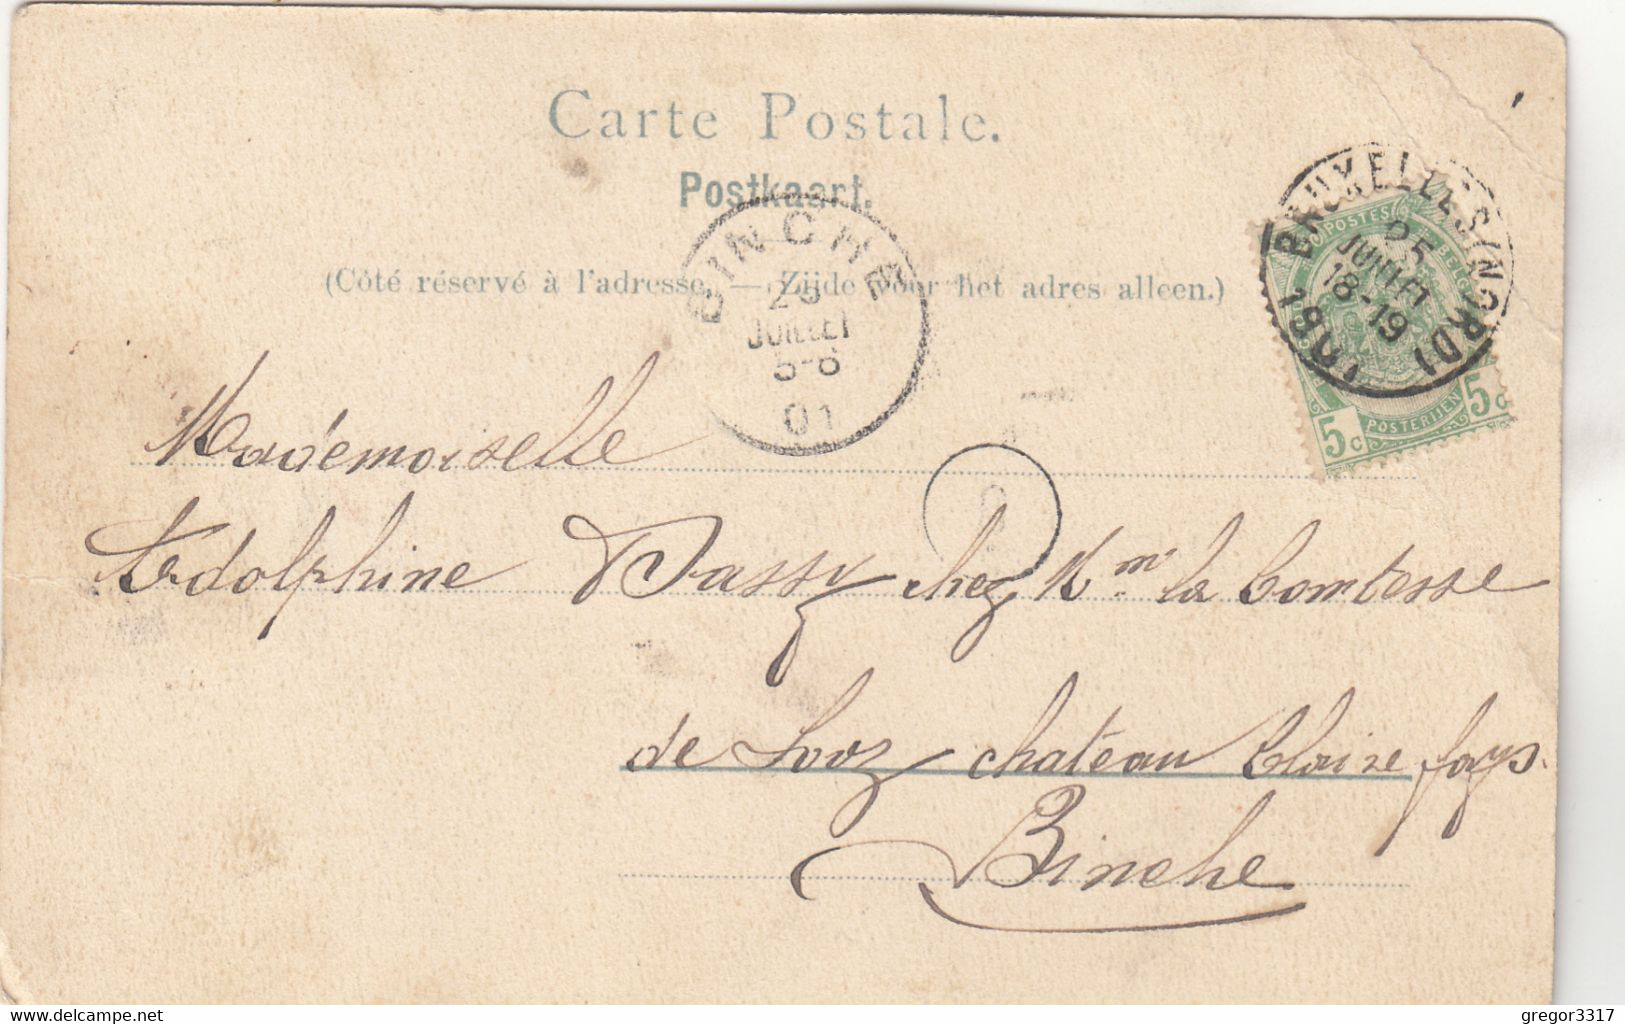 Carte Postale.
Postkaart.
(Côté réservé à l'adresse. — Zijde voor het adres alleen.)
BRUXELLES (NORD)
25
JUILLET
18-19
1901
POSTES
BELGI
5c POSTERIJEN 5c
BINCHE
JUILLET
5-6
01
Mademoiselle
Adolphine Dassy chez Mme la Comtesse
de Looz château Claire fays.
Binche
www.delcampe.net
gregor3317